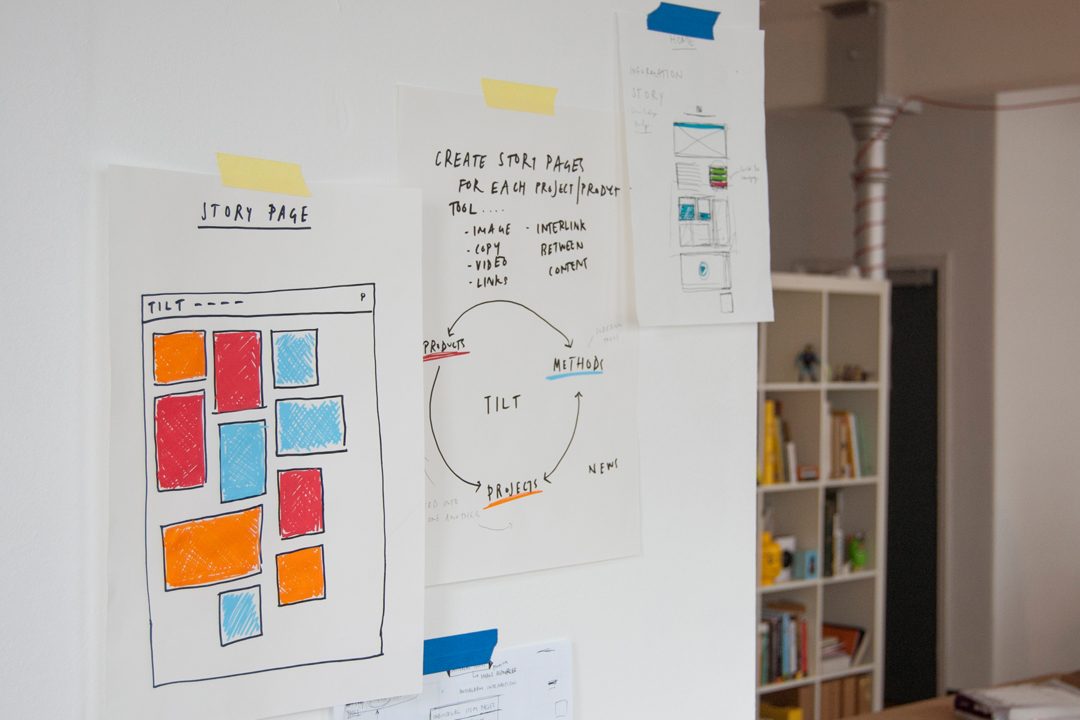 STORY PAGE
TILT ----
P
CREATE STORY PAGES
FOR EACH PROJECT/PRODUCT
TOOL ....
- IMAGE
- COPY
- VIDEO
- LINKS
- INTERLINK
BETWEEN
CONTENT
PRODUCTS
METHODS
TILT
PROJECTS
NEWS
HOME
INFORMATION
STORY